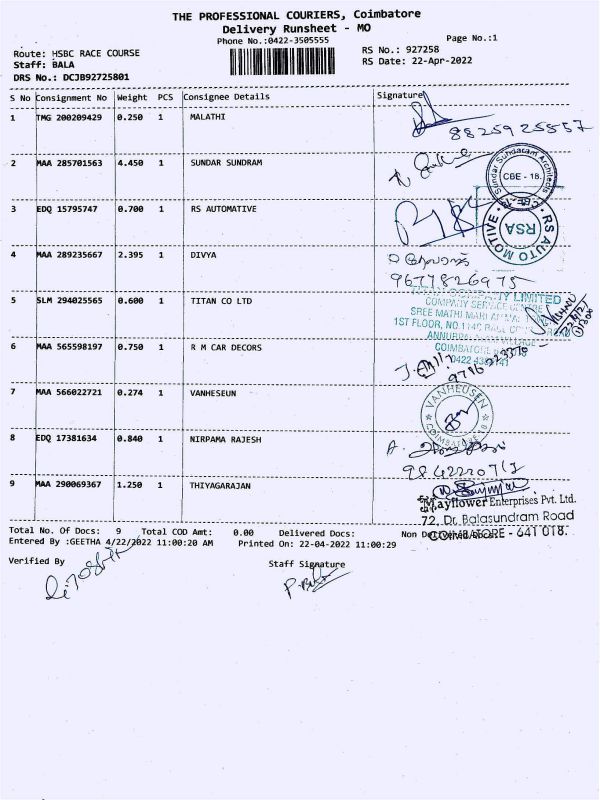 THE PROFESSIONAL COURIERS, Coimbatore
Delivery Runsheet - MO
Phone No.:0422-3505555
Page No.:1
Route: HSBC RACE COURSE
RS No.: 927258
Staff: BALA
RS Date: 22-Apr-2022
DRS No.: DCJB92725801
S No Consignment No Weight PCS Consignee Details Signature
1 TMG 200209429 0.250 1 MALATHI
8825925857
2 MAA 285701563 4.450 1 SUNDAR SUNDRAM
Sundar Sundaram Architects
CBE - 18.
3 EDQ 15795747 0.700 1 RS AUTOMATIVE
RS AUTO MOTIVE
RSA
4 MAA 289235667 2.395 1 DIVYA
9677826975
5 SLM 294025565 0.600 1 TITAN CO LTD
TITAN COMPANY LIMITED
COMPANY SERVICE CENTRE
SREE MATHI MARI
1ST FLOOR, NO.
COIMBATORE
6 MAA 565598197 0.750 1 R M CAR DECORS
7 MAA 566022721 0.274 1 VANHESEUN
VANHEUSEN
COIMBATORE
8 EDQ 17381634 0.840 1 NIRPAMA RAJESH
9 MAA 290069367 1.250 1 THIYAGARAJAN
Mayflower Enterprises Pvt. Ltd.
72, Dr. Balasundram Road
COIMBATORE - 641 018.
Total No. Of Docs: 9 Total COD Amt: 0.00 Delivered Docs: Non Delivered Docs:
Entered By :GEETHA 4/22/2022 11:00:20 AM Printed On: 22-04-2022 11:00:29
Verified By Staff Signature